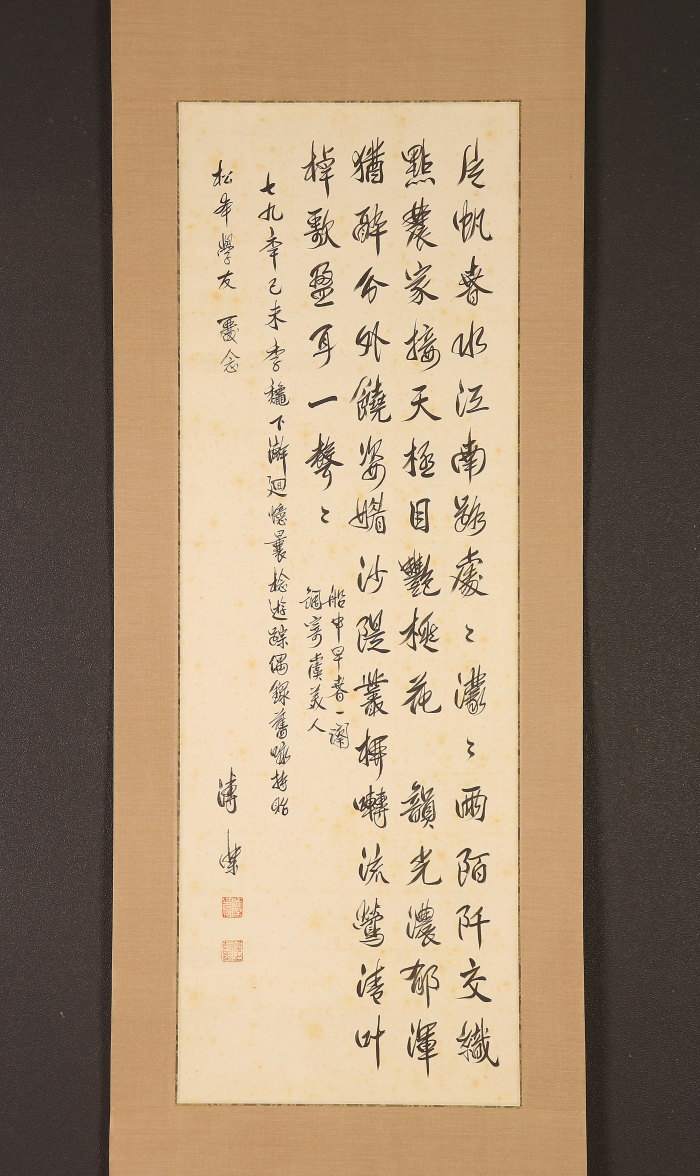 片帆春水江南路處々濛々雨陌阡交織
點農家接天極目艷桃花 韻光濃郁渾
猶醉分外饒姿媚沙隄叢柳囀流鶯清叶
棹歌盈耳一聲々
船中早春一闋
調寄虞美人
七九年己未季穐下澣廻憶曩稔遊蹤偶錄舊咏持貽
松本學友 念
溥傑